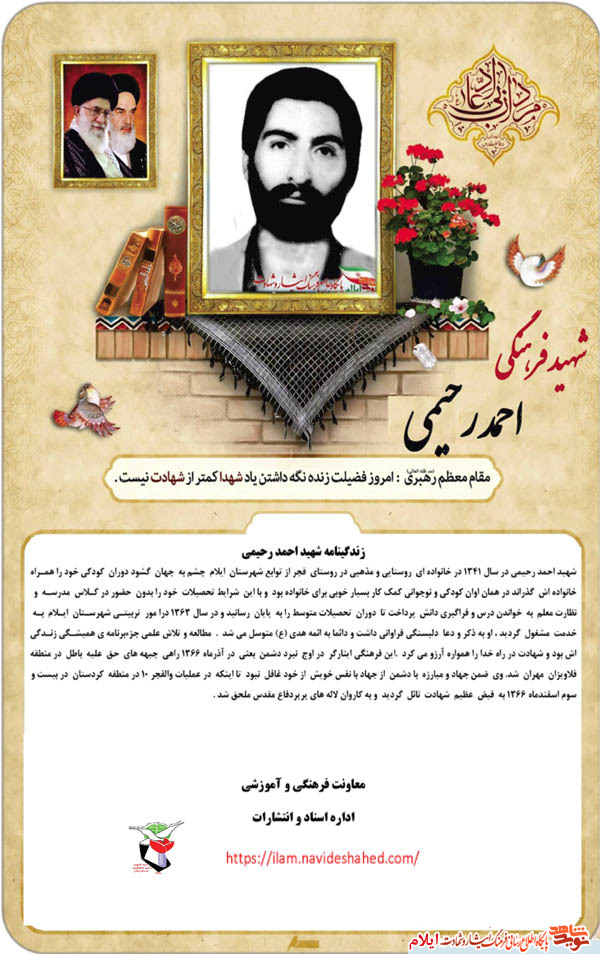 مردان بی ادعا
پایگاه اطلاع رسانی فرهنگ ایثار و شهادت
شهید فرهنگی
احمد رحیمی
مقام معظم رهبری (مد ظله العالی) : امروز فضیلت زنده نگه داشتن یاد شهدا کمتر از شهادت نیست .
زندگینامه شهید احمد رحیمی
شهید احمد رحیمی در سال ۱۳۴۱ در خانواده ای روستایی و مذهبی در روستای فجر از توابع شهرستان ایلام چشم به جهان گشود دوران کودکی خود را همراه
خانواده اش گذراند در همان اوان کودکی و نوجوانی کمک کار بسیار خوبی برای خانواده بود و با این شرایط تحصیلات خود را بدون حضور در کلاس مدرسه و
نظارت معلم به خواندن درس و فراگیری دانش پرداخت تا دوران تحصیلات متوسط را به پایان رسانید و در سال ۱۳۶۳ درا مور تربیتی شهرستان ایلام به
خدمت مشغول گردید ، او به ذکر و دعا دلبستگی فراوانی داشت و دائما به ائمه هدی (ع) متوسل می شد . مطالعه و تلاش علمی جزءبرنامه ی همیشگی زندگی
اش بود و شهادت در راه خدا را همواره آرزو می کرد .این فرهنگی ایثارگر در اوج نبرد دشمن بعثی در آذرماه ۱۳۶۶ راهی جبهه های حق علیه باطل در منطقه
قلاویزان مهران شد. وی ضمن جهاد و مبارزه با دشمن از جهاد با نفس خویش از خود غافل نبود تا اینکه در عملیات والفجر ۱۰ در منطقه کردستان در بیست و
سوم اسفندماه ۱۳۶۶ به فیض عظیم شهادت نائل گردید و به کاروان لاله های پرپردفاع مقدس ملحق شد .
معاونت فرهنگی و آموزشی
اداره اسناد و انتشارات
https://ilam.navideshahed.com/
نوید شاهد پایگاه اطلاع رسانی فرهنگ ایثار و شهادت ایلام